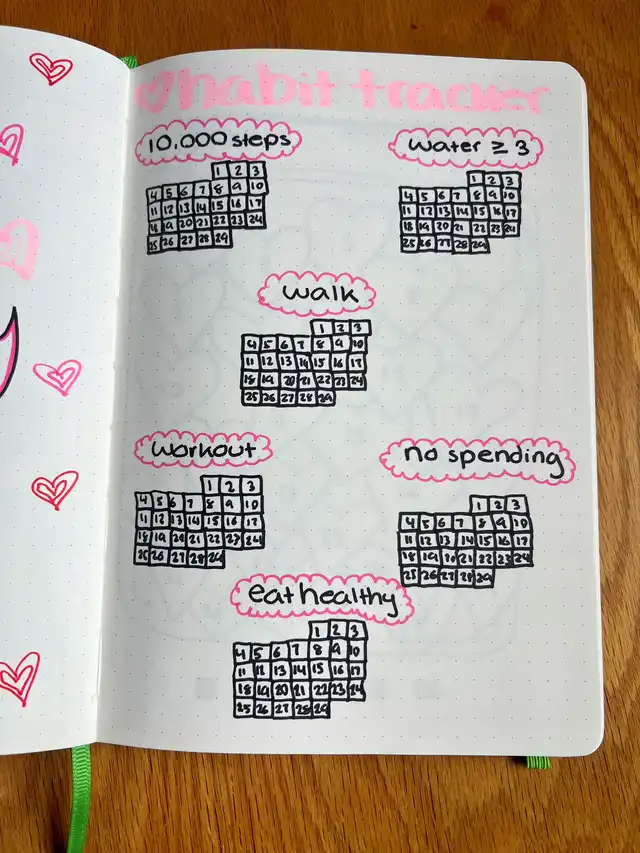 habit tracker
10,000 steps
1 2 3
4 5 6 7 8 9 10
11 12 13 14 15 16 17
18 19 20 21 22 23 24
25 26 27 28 29
water ≥ 3
1 2 3
4 5 6 7 8 9 10
11 12 13 14 15 16 17
18 19 20 21 22 23 24
25 26 27 28 29
walk
1 2 3
4 5 6 7 8 9 10
11 12 13 14 15 16 17
18 19 20 21 22 23 24
25 26 27 28 29
workout
1 2 3
4 5 6 7 8 9 10
11 12 13 14 15 16 17
18 19 20 21 22 23 24
25 26 27 28 29
no spending
1 2 3
4 5 6 7 8 9 10
11 12 13 14 15 16 17
18 19 20 21 22 23 24
25 26 27 28 29
eat healthy
1 2 3
4 5 6 7 8 9 10
11 12 13 14 15 16 17
18 19 20 21 22 23 24
25 26 27 28 29